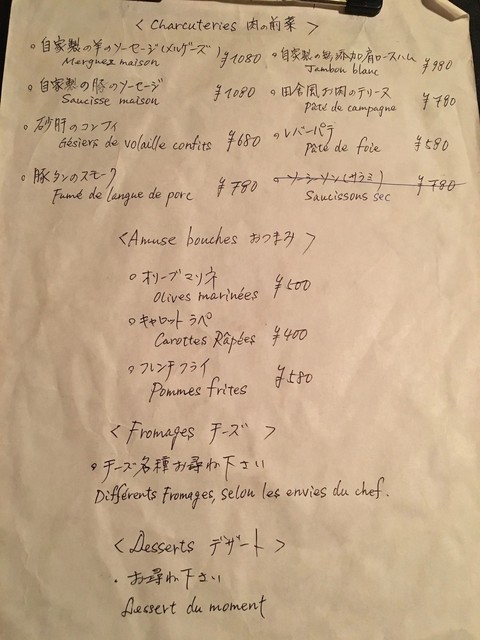 < Charcuteries 肉の前菜 >
○ 自家製の羊のソーセージ(メルゲーズ) ¥1080
Merguez maison
○ 自家製の無添加肩ロースハム ¥980
Jambon blanc
○ 自家製の豚のソーセージ ¥1080
Saucisse maison
○ 田舎風お肉のテリーヌ ¥780
Pâté de campagne
○ 砂肝のコンフィ ¥680
Gésiers de volaille confits
○ レバーパテ ¥580
Pâté de foie
○ 豚タンのスモーク ¥780
Fumé de langue de porc
○ ソーシーソン(サラミ) ¥780
Saucissons sec
<Amuse bouches おつまみ >
○ オリーブマリネ ¥500
Olives marinées
○ キャロットラペ ¥400
Carottes Râpées
○ フレンチフライ ¥580
Pommes frites
< Fromages チーズ >
○ チーズ各種お尋ね下さい
Différents Fromages, selon les envies du chef.
< Desserts デザート >
・ お尋ね下さい
Dessert du moment